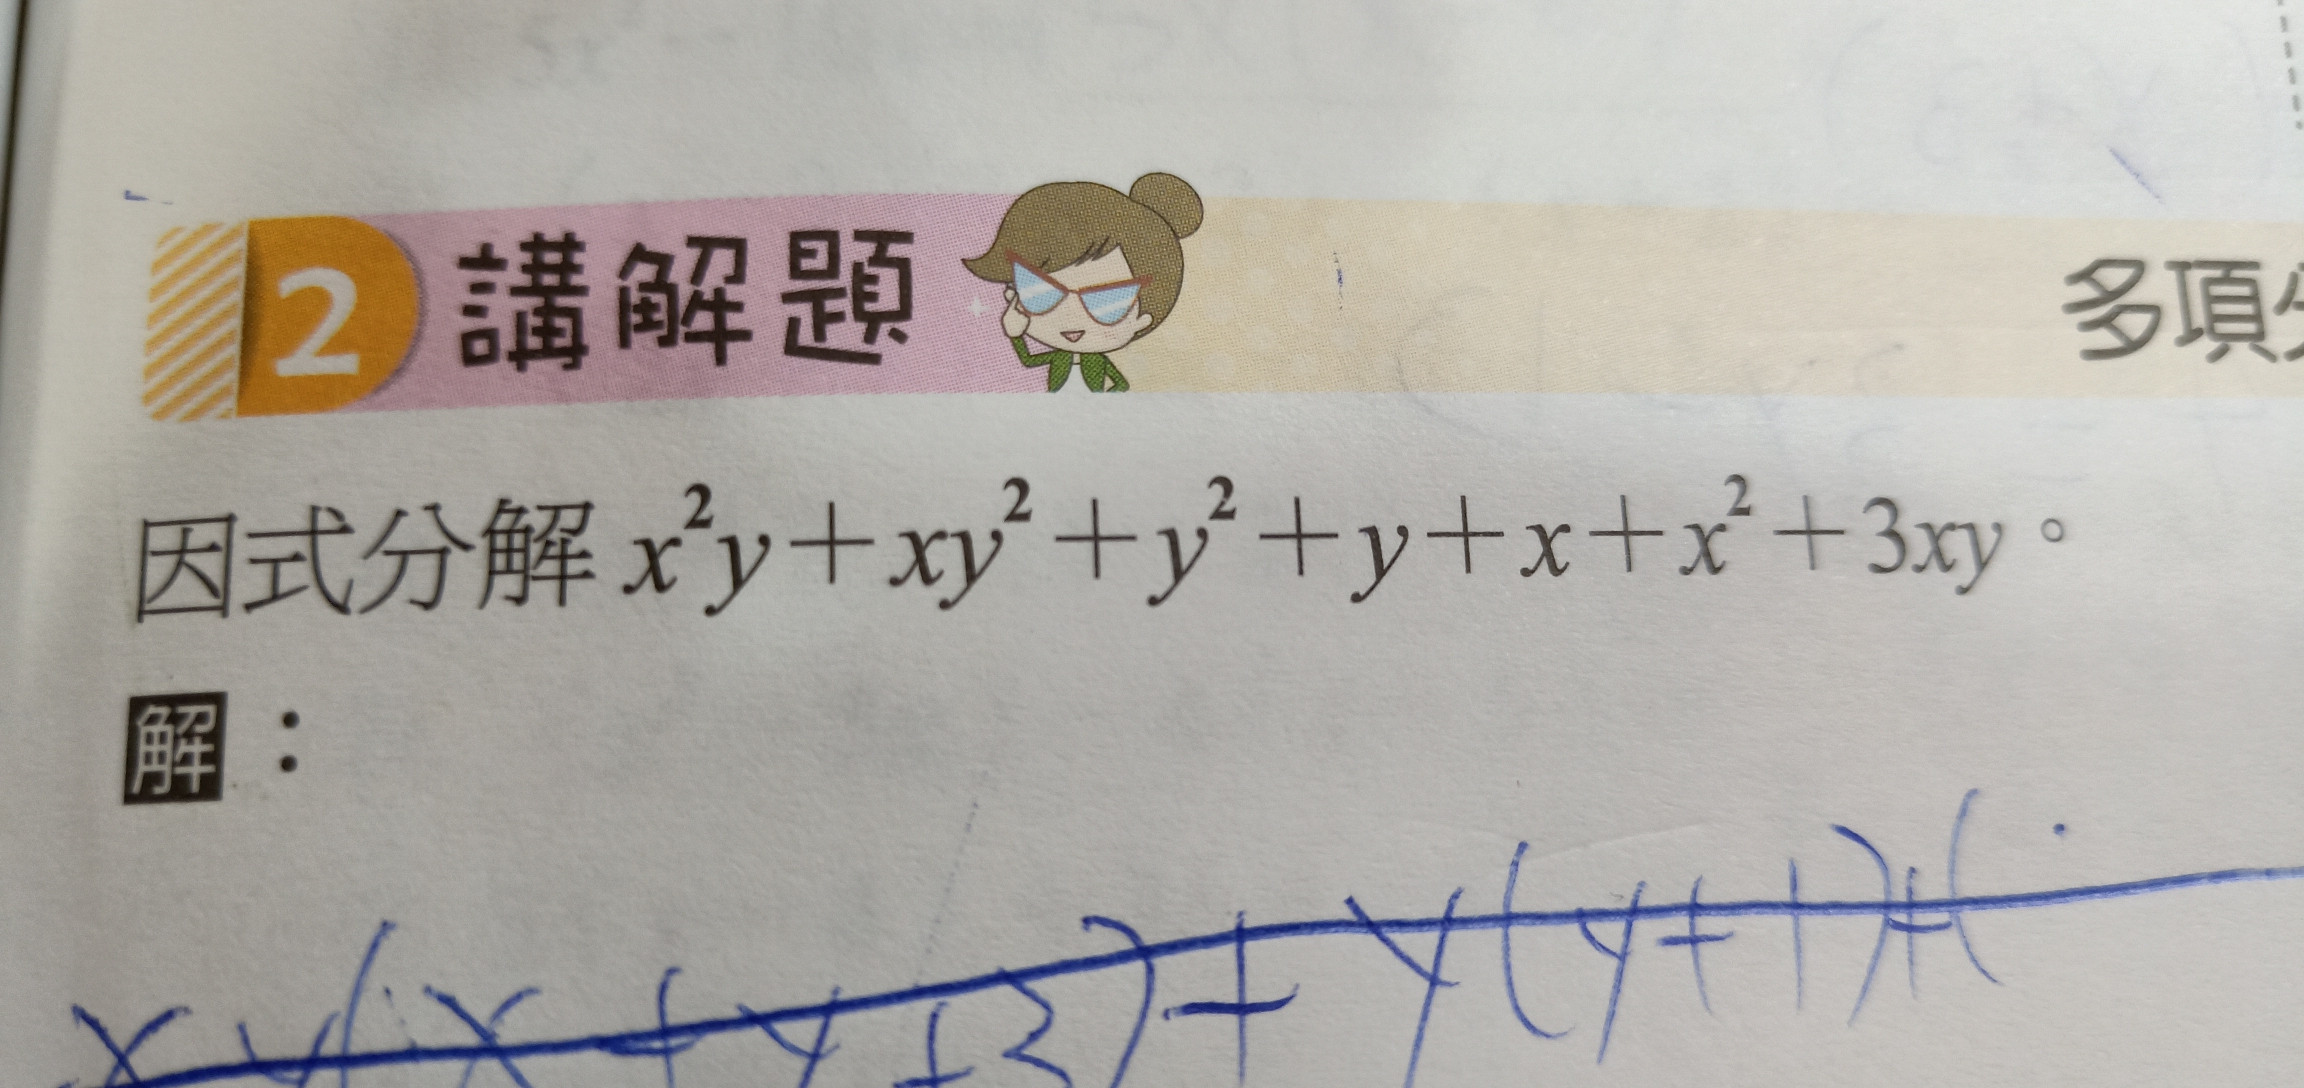 2 講解題
多項
因式分解 x²y+xy²+y²+y+x+x²+3xy。
解：
xy(x+y+3)+y(y+1)+(